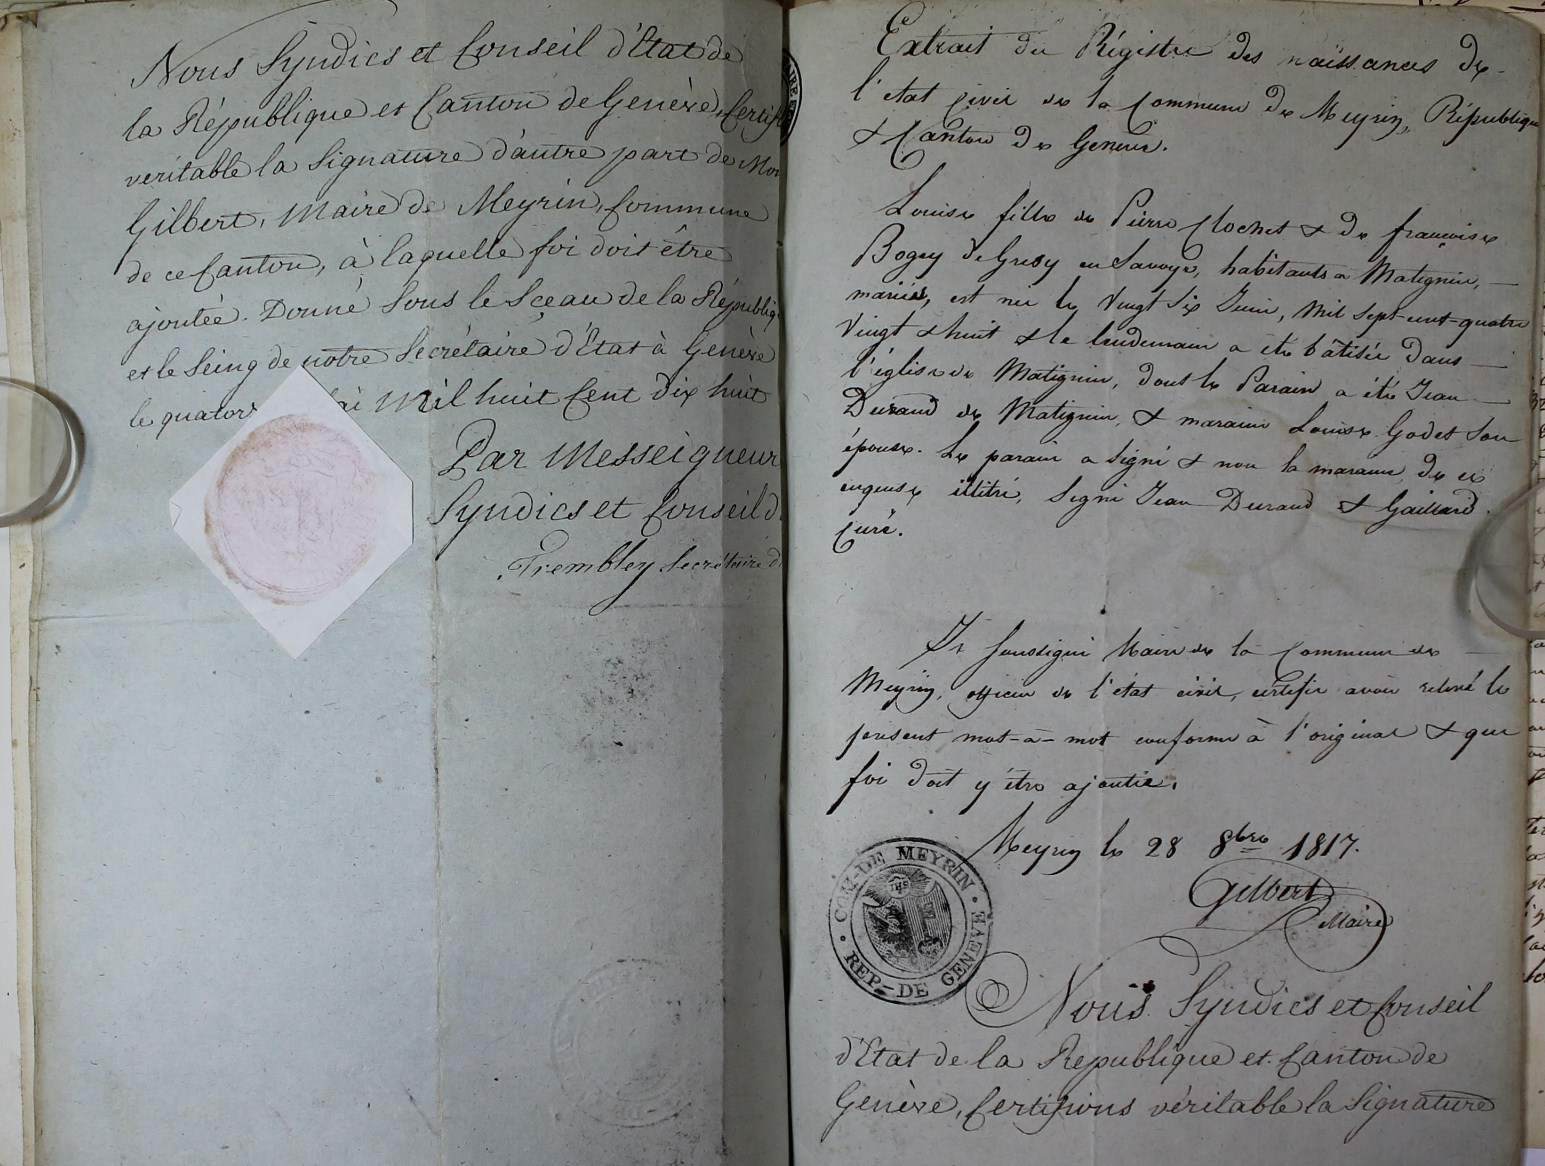 Nous Syndics et Conseil d'Etat de
la République et Canton de Genève, Certif
veritable la Signature d'autre part de Mon
Gilbert, Maire de Meyrin, Commune
de ce Canton, à laquelle foi doit être
ajoutée. Donné Sous le Sceau de la Républiq
et le Seing de notre Secrétaire d'Etat à Genève
le quator ai Mil huit Cent dix huit
Par Messeigneur
Syndics et Conseil d
Trembley Secrétaire d
Extrait du Régistre des naissances de
l'etat Civil de la Commune de Meyrin, République
& Canton de Geneve.
Louise fille de Pierre Clochet & de françoise
Bogey de Gresy en Savoye, habitants a Matignin,
mariés, est née le Vingt Six Juin, Mil Sept-cent-quatre
Vingt & huit & le lendemain a été bâtisée dans
l'église de Matignin, dont le Parain a été Jean
Durand de Matignin, & maraine Louise Godet Son
épouse. Le parain a Signé & non la maraine de ce
enquise illitré, Signé Jean Durand & Gaillard
Curé.
Je Soussigné Maire de la Commune de
Meyrin, officier de l'état civil, certifie avoir relevé le
présent mot-à-mot conforme à l'original & que
foi doit y être ajoutée.
Meyrin le 28 8bre 1817.
Gilbert
Maire
COM-DE MEYRIN
REP-DE GENEVE
Nous Syndics et Conseil
d'Etat de la Republique et Canton de
Genève, Certifions véritable la Signature